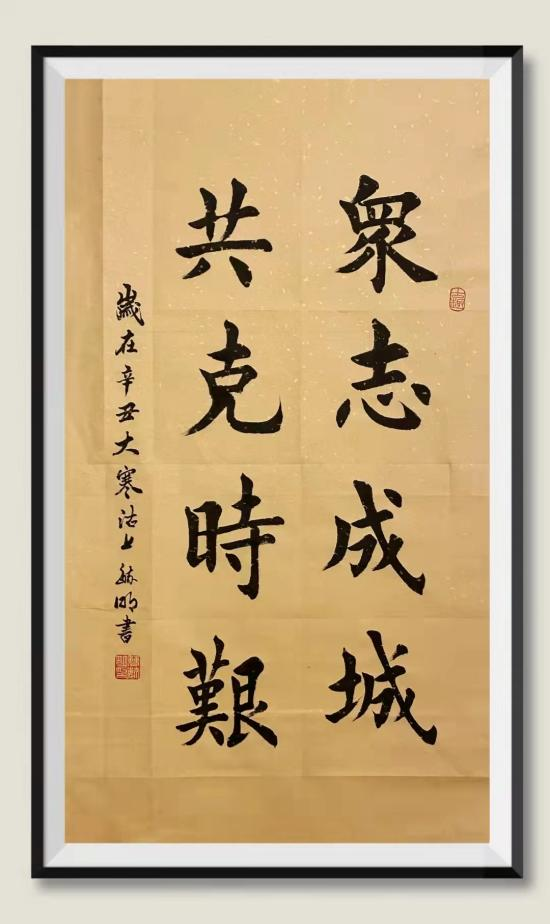 眾志成城
共克時艱
歲在辛丑大寒沽上書